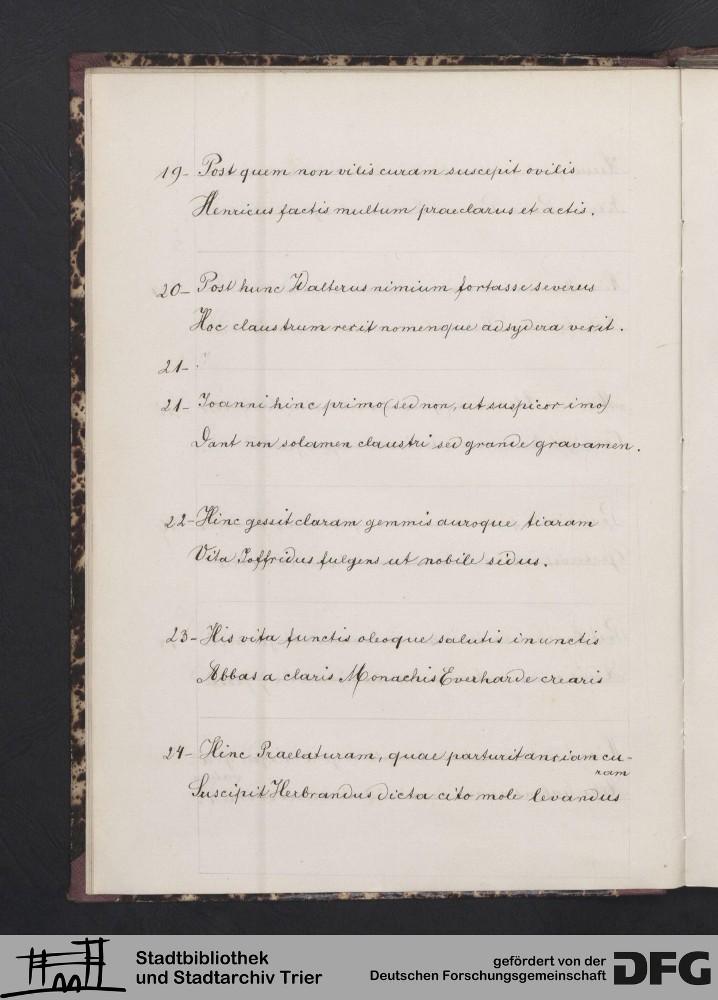 19- Post quem non vilis curam suscepit ovilis
Henricus factis multum praeclarus et actis.
20- Post hunc Walterus nimium fortasse severus
Hoc claustrum rexit nomenque ad sydera vexit.
21-
21- Joanni hinc primo (sed non, ut suspicor imo)
Dant non solamen claustri sed grande gravamen.
22- Hinc gessit claram gemmis auroque tiaram
Vita Joffridus fulgens ut nobile sidus.
23- His vita functis oleoque salutis inunctis
Abbas a claris Monachis Everharde crearis
24- Hinc Praelaturam, quae parturit anxiam cu-
ram
Suscipit Herbrandus dicta cito mole levandus
Stadtbibliothek
und Stadtarchiv Trier
gefördert von der
Deutschen Forschungsgemeinschaft
DFG